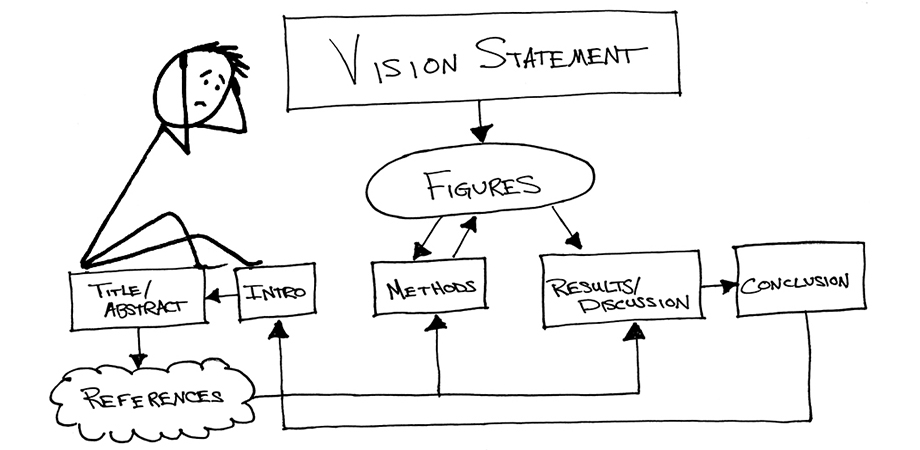 VISION STATEMENT
FIGURES
TITLE/
ABSTRACT
INTRO
METHODS
RESULTS/
DISCUSSION
CONCLUSION
REFERENCES